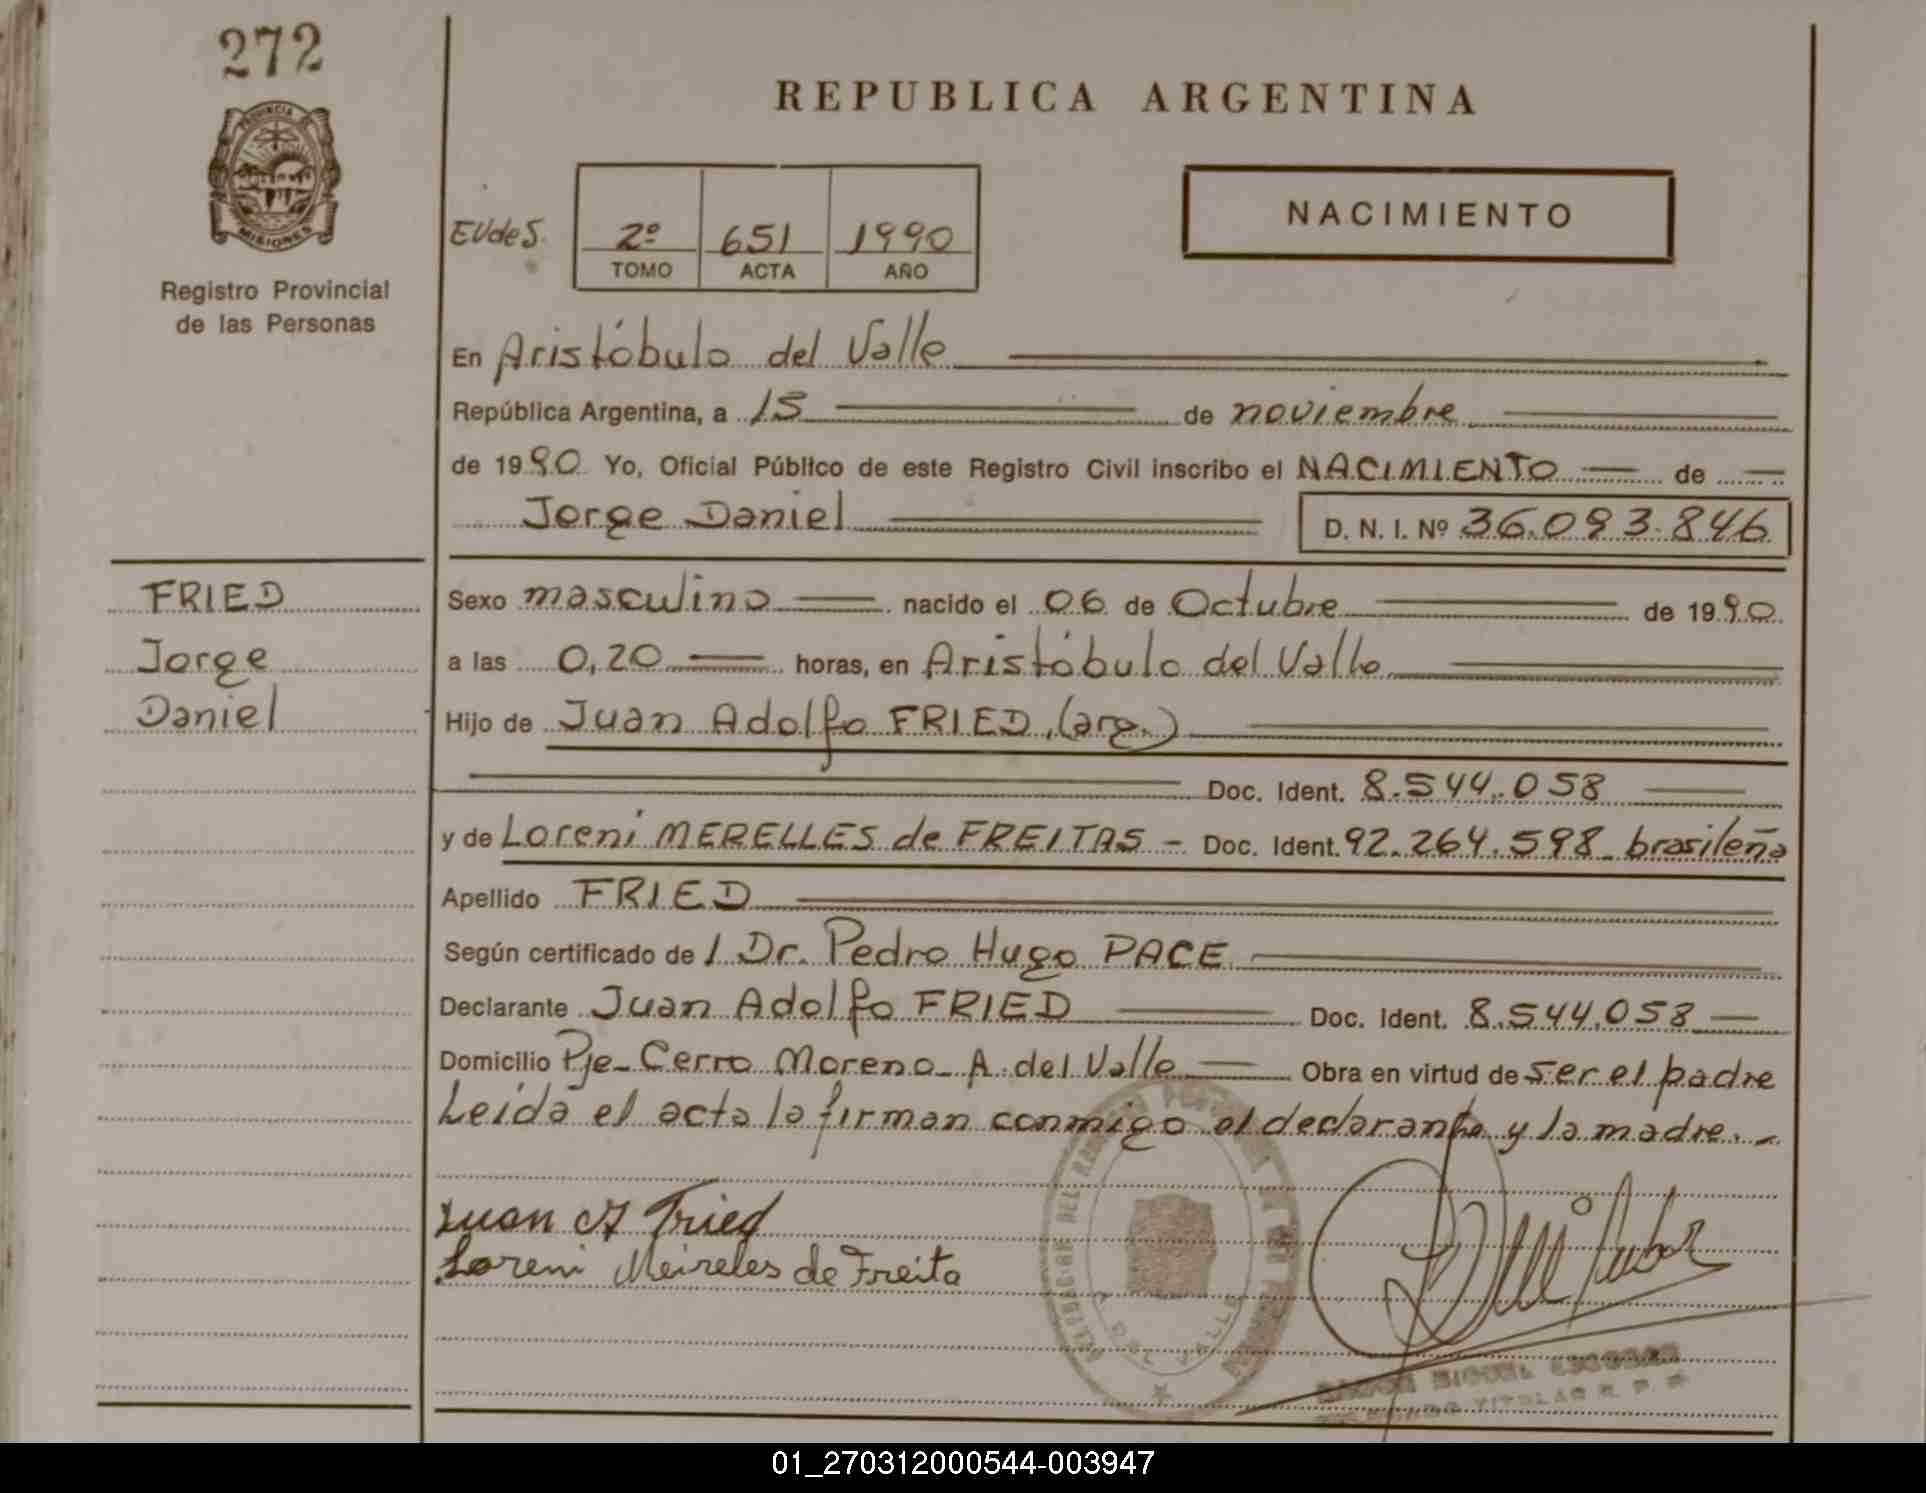 272
PROVINCIA
MISIONES
Registro Provincial
de las Personas
REPUBLICA ARGENTINA
EVdeS.
2º 651 1990
TOMO ACTA AÑO
NACIMIENTO
En Aristóbulo del Valle
República Argentina, a 15 de noviembre
de 1990 Yo, Oficial Público de este Registro Civil inscribo el NACIMIENTO de
Jorge Daniel D. N. I. Nº 36.093.846
FRIED
Jorge
Daniel
Sexo masculino nacido el 06 de Octubre de 1990
a las 0,20 horas, en Aristóbulo del Valle
Hijo de Juan Adolfo FRIED, (arg.)
Doc. Ident. 8.544.058
y de Loreni MERELLES de FREITAS - Doc. Ident. 92.264.598 brasileña
Apellido FRIED
Según certificado de / Dr. Pedro Hugo PACE
Declarante Juan Adolfo FRIED Doc. Ident. 8.544.058
Domicilio Pje- Cerro Moreno- A. del Valle Obra en virtud de ser el padre
Leída el acta la firman conmigo el declarante y la madre. -
Juan A Fried
Loreni Meireles de Freita
DEL VALLE
01_270312000544-003947